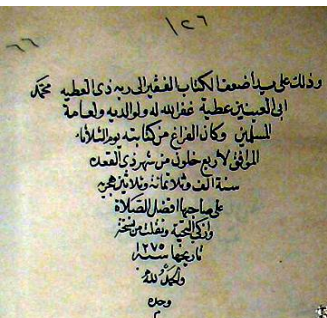 ١٢٦
٦٦
وذلك على يد اضعف الكتاب الفقير الى ربه ذى العطيه محمد
ابى العينين عطية غفر الله له ولوالديه ولعامة
المسلمين وكان الفراغ من كتابته يوم الثلاثاء
الموافق لاربع خلون من شهر ذى القعده
سنة الف وثلاثمائة وثلاثين هجرية
على صاحبها افضل الصلاة
وازكى التحية ونقلت من نسخة
تاريخها سنة ١٢٧٥
والحمد لله
وحده
م